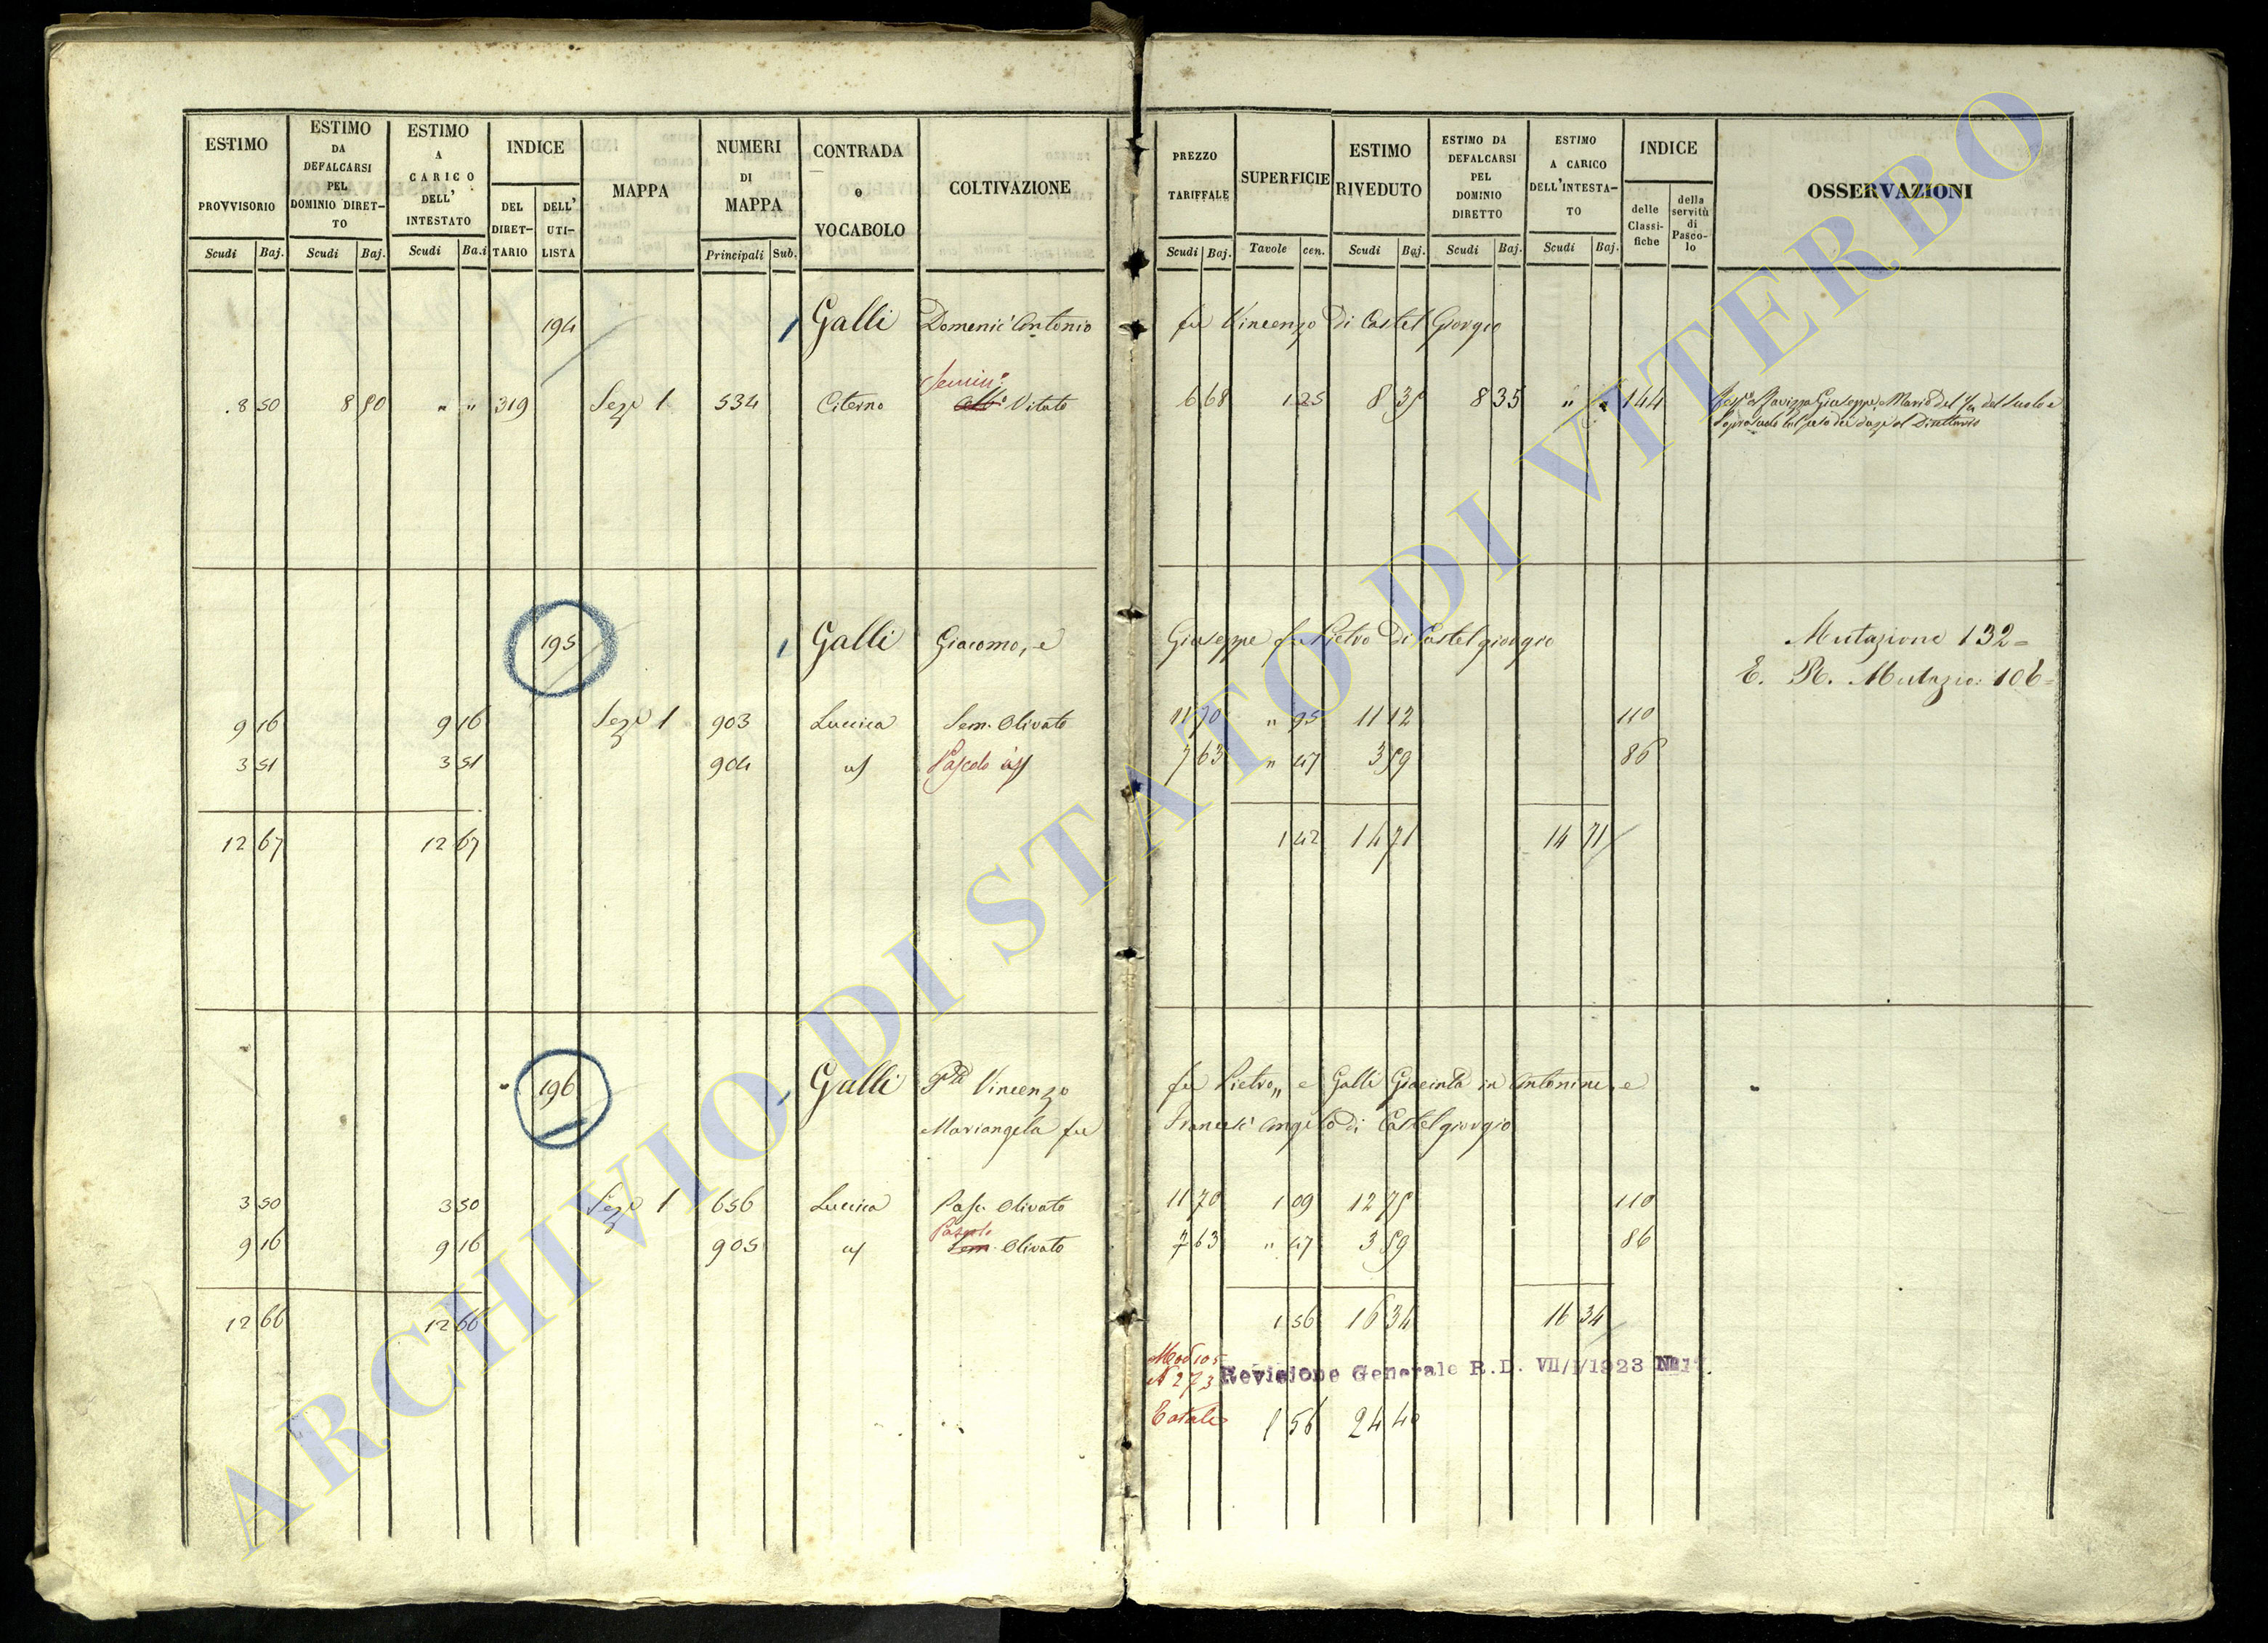 ESTIMO PROVVISORIO Scudi Baj.
ESTIMO DA DEFALCARSI PEL DOMINIO DIRET-TO Scudi Baj.
ESTIMO A CARICO DELL' INTESTATO Scudi Ba.i
INDICE DEL DIRET-TARIO DELL' UTI-LISTA
MAPPA
NUMERI DI MAPPA Principali Sub.
CONTRADA o VOCABOLO
COLTIVAZIONE
PREZZO TARIFFALE Scudi Baj.
SUPERFICIE Tavole cen.
ESTIMO RIVEDUTO Scudi Baj.
ESTIMO DA DEFALCARSI PEL DOMINIO DIRETTO Scudi Baj.
ESTIMO A CARICO DELL'INTESTA-TO Scudi Baj.
INDICE delle Classi-fiche della servitù di Pasco-lo
OSSERVAZIONI
194 Galli Domenic' Antonio fu Vincenzo di Castel Giorgio
Semin:
8 50 8 50 " " 319 Sezᵉ 1 534 Citerno Vitato 6 68 1 25 8 35 8 35 " " 144
195 Galli Giacomo, e Giuseppe fu Pietro di Castelgiorgio Mutazione 132=
E. R. Mutazio: 106=
9 16 9 16 Sezᵉ 1 903 Lucica Sem. Olivato 11 70 " 95 11 12 110
3 51 3 51 904 Pascolo 7 63 " 47 3 59 86
12 67 12 67 1 42 14 71 14 71
196 Galli Vincenzo fu Pietro„ e Galli Giacinta in Antonini, e
Mariangela fu Francesc' Angelo di Castelgiorgio
3 50 3 50 Sezᵉ 1 656 Lucica Pasc. Olivato 11 70 1 09 12 75 110
Pascolo
9 16 9 16 905 Sem. Olivato 7 63 " 47 3 59 86
12 66 12 66 1 56 16 34 16 34
Mod 105
N 273 Revisione Generale R.D. VII/I/1923 № 17.
Totale 1 56 24 40
ARCHIVIO DI STATO DI VITERBO